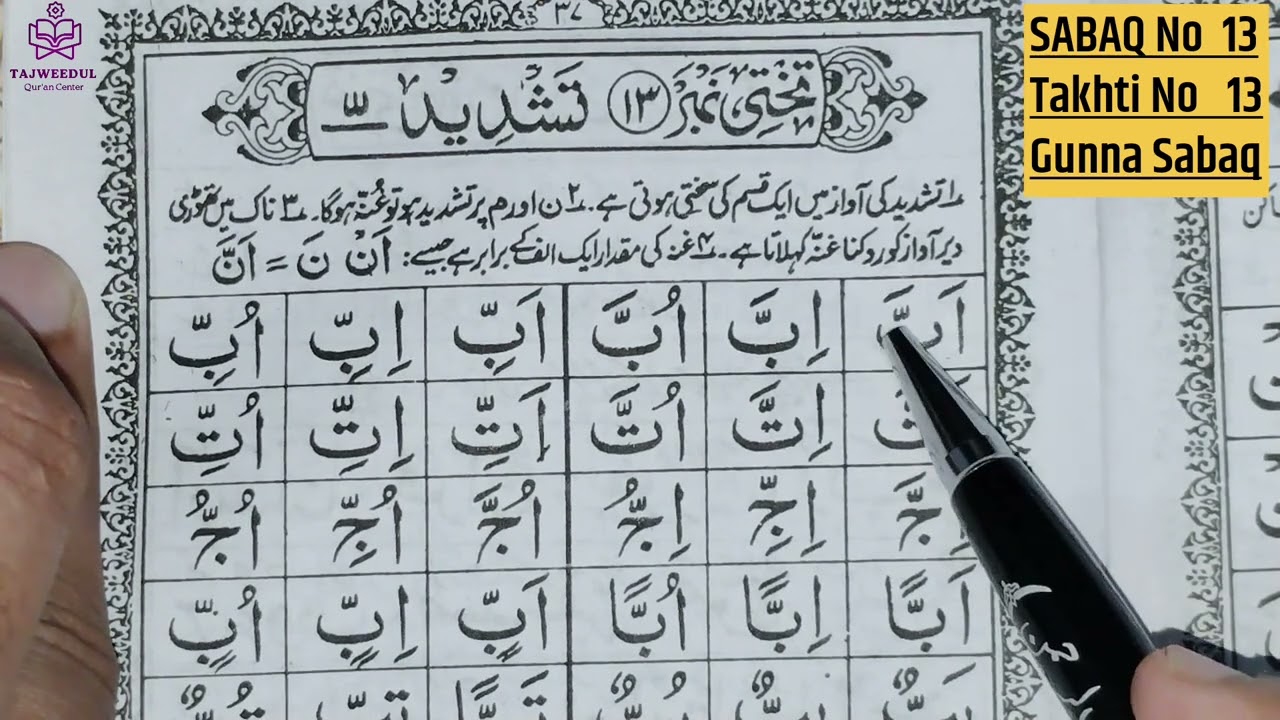 TAJWEEDUL
Qur'an Center
SABAQ No 13
Takhti No 13
Gunna Sabaq
٣٧
تختی نمبر ١٣ تَشْدِید ـّ
۱ تشدید کی آواز میں ایک قسم کی سختی ہوتی ہے۔ ۲ ن اور م پر تشدید ہو تو غنّہ ہوگا۔ ۳ ناک میں تھوڑی
دیر آواز کو روکنا غنّہ کہلاتا ہے۔ ۴ غنہ کی مقدار ایک الف کے برابر ہے جیسے: اَنْ نَ = اَنَّ
اَبَّ اِبَّ اُبَّ اَبِّ اِبِّ اُبِّ
اِتَّ اُتَّ اَتِّ اِتِّ اُتِّ
اِجِّ اِجُّ اُجَّ اُجِّ اُجُّ
اَبًّا اِبًّا اُبًّا اَبٍّ اِبٍّ اُبٍّ